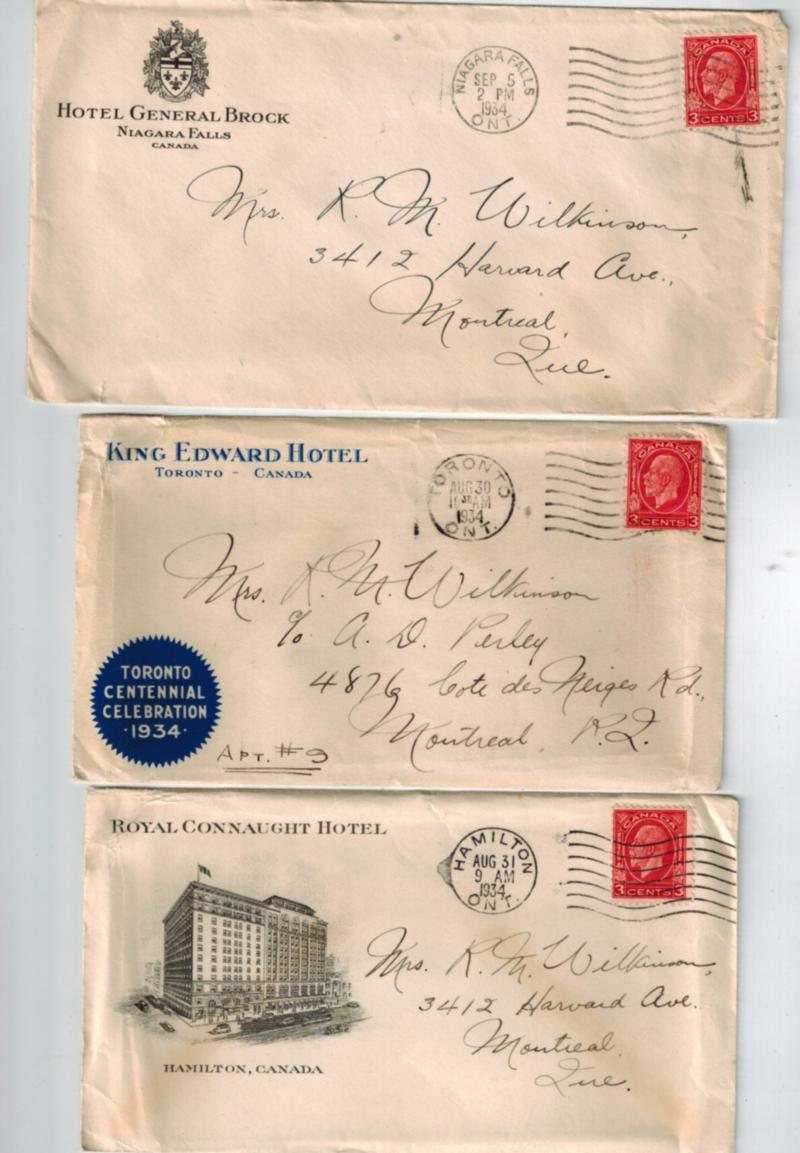 HOTEL GENERAL BROCK
NIAGARA FALLS
CANADA
NIAGARA FALLS
SEP 5
2 PM
1934
ONT.
CANADA
3 CENTS 3
Mrs. R. M. Wilkinson,
3412 Harvard Ave.,
Montreal,
Que.
KING EDWARD HOTEL
TORONTO - CANADA
TORONTO
AUG 30
AM
1934
ONT.
CANADA
3 CENTS 3
Mrs. R. M. Wilkinson
c/o A. D. Perley
Cote des Neiges Rd.,
Montreal, P.Q.
TORONTO
CENTENNIAL
CELEBRATION
·1934·
APT. #9
ROYAL CONNAUGHT HOTEL
HAMILTON
AUG 31
9 AM
1934
ONT.
CANADA
3 CENTS 3
Mrs. R. M. Wilkinson,
3412 Harvard Ave.
Montreal,
Que.
HAMILTON, CANADA